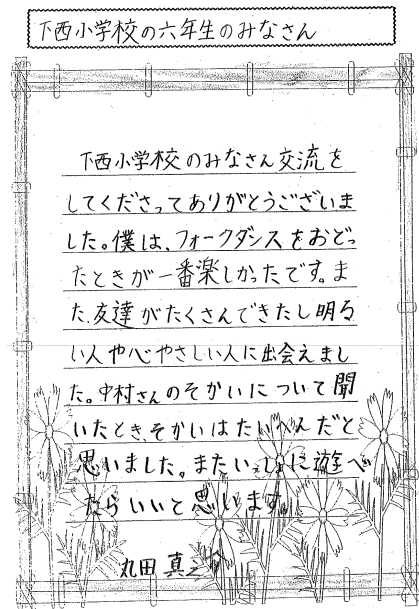 下西小学校の六年生のみなさん
下西小学校のみなさん交流を
してくださってありがとうございま
した。僕は、フォークダンスをおどっ
たときが一番楽しかったです。ま
た、友達がたくさんできたし明る
い人や心やさしい人に出会えまし
た。中村さんのそかいについて聞
いたとき、そかいはたいへんだと
思いました。またいっしょに遊べ
たらいいと思います。
丸田 真之介